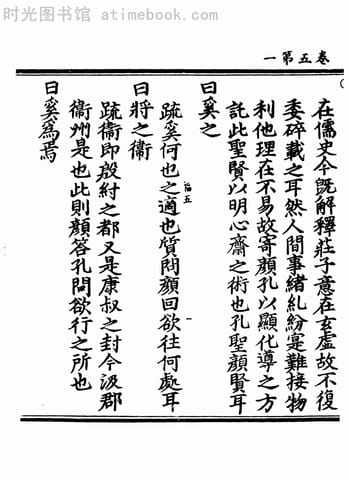 时光图书馆 - www.atimebook.com
卷五第一
在儒史今既解釋莊子意在玄虛故不復
委碎載之耳然人間事緒糺紛寔難接物
利他理在不易故寄顏孔以顯化導之方
託此聖賢以明心齋之術也孔聖顏賢耳
曰奚之
疏奚何也之適也質問顏回欲往何處耳
福五
一
曰將之衛
疏衛即殷紂之都又是康叔之封今汲郡
衛州是也此則顏荅孔問欲行之所也
曰奚為焉